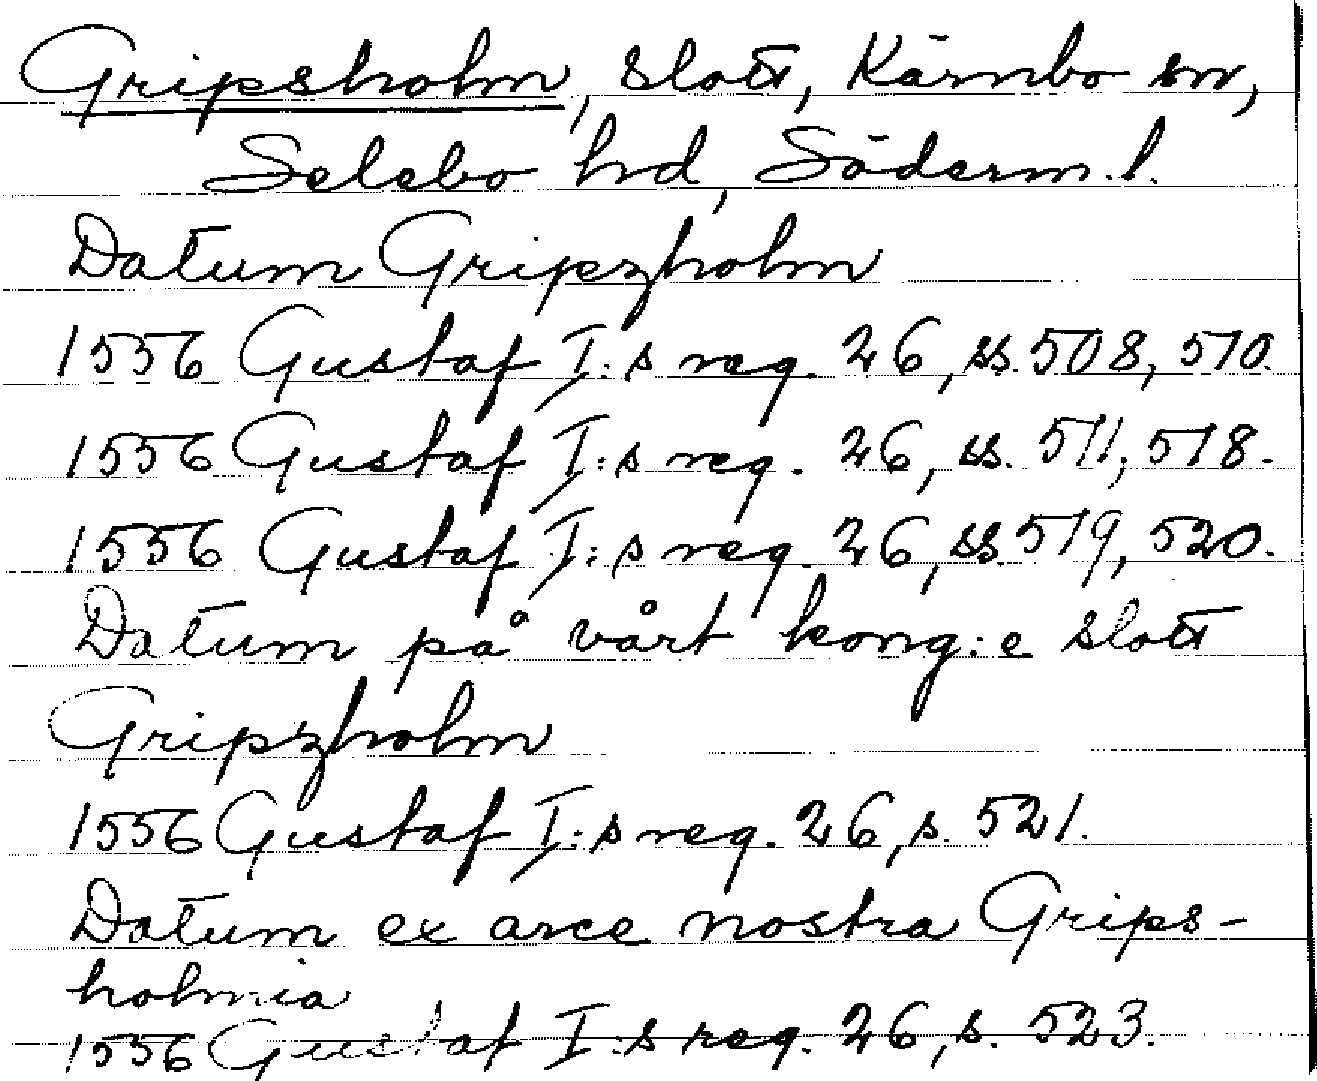 Gripsholm, slott, Kärnbo sn,
Selebo hd, Söderm. l.
Datum Gripzholm
1556 Gustaf I:s reg. 26, ss. 508, 510.
1556 Gustaf I:s reg. 26, ss. 511, 518.
1556 Gustaf I:s reg. 26, ss. 519, 520.
Datum på vårt kong:e slott
Gripzholm
1556 Gustaf I:s reg. 26, s. 521.
Datum ex arce nostra Grips-
holmia
1556 Gustaf I:s reg. 26, s. 523.